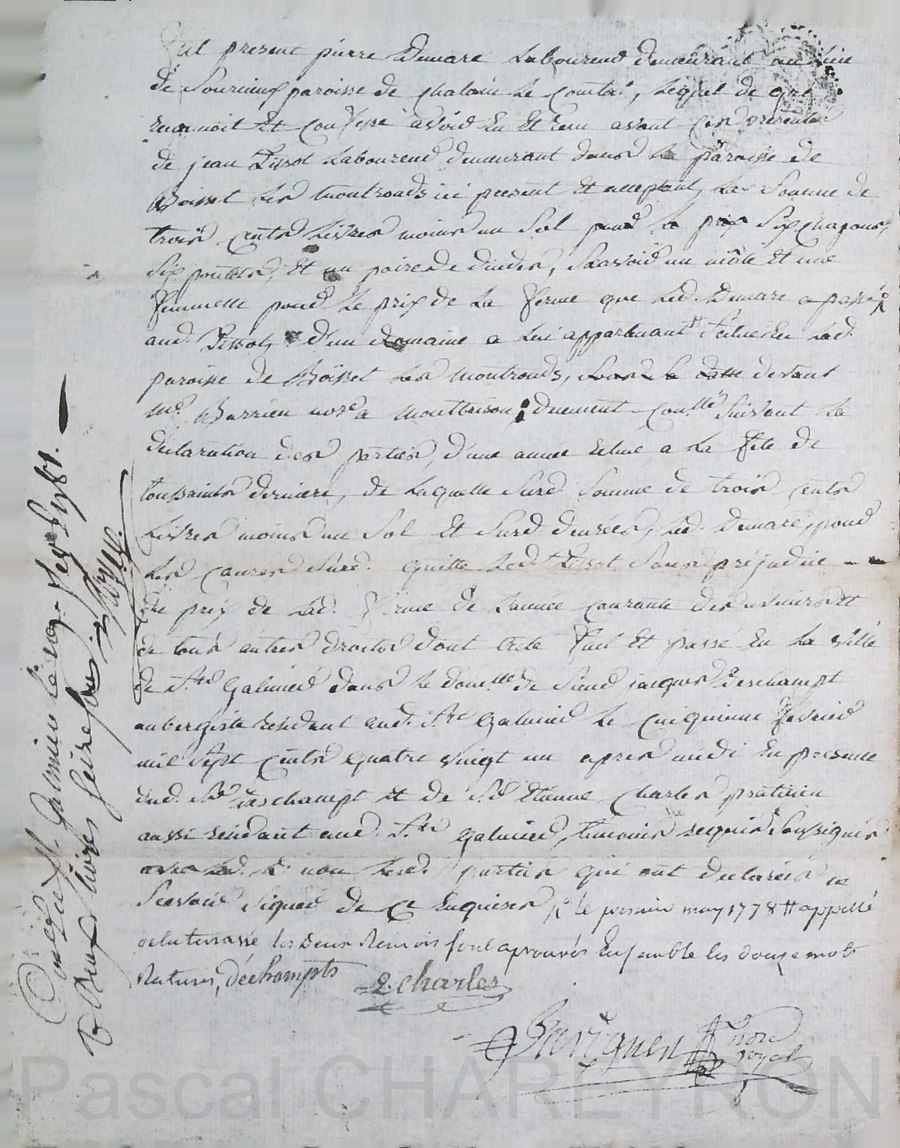 Fut present pierre Demare Laboureur demeurant au lieu
de Sourcieux paroisse de Chalain Le Comtal, Lequel de gré
reconnoit Et Confesse avoir Eu Et recu avant ces presentes
de jean Pissot Laboureur demeurant dans la paroisse de
Boisset Les Montronds ici present Et acceptant, La Somme de
trois cents Livres moins un Sol pour le prix Six chapons,
Six poulets, Et un paire de dindes, Sçavoir un mâle Et une
femmelle pour Le prix de La ferme que Led. Demare a passé
aud. Pissot d'un Domaine a Lui appartenant Scitué En Lad.
paroisse de Boisset Les Montronds, Sous Sa datte devant
Me Barrieu nore a Montbrison, duement Conllé Suivant La
déclaration des parties, d'une année Echue a La fête de
toussaints derniere, de Laquelle Susd Somme de trois cents
Livres moins un Sol Et Susd denrées, Led. Demare, pour
Les Causes Susd. quitte Led. Pissot Sans préjudice
du prix de Lad. ferme de L'année Courante des avenir Et
de tous autres droits dont acte fait Et passé En La ville
de St Galmier dans le domlle de Sieur jacques Deschampt
aubergiste residant aud. St Galmier Le Cinquieme fevrier
mil Sept Cents quatre vingt un apres midi En presence
dud. Sr Deschampt et de Sr Etienne Charles praticien
aussi residant aud. St Galmier, temoins requis Soussignés
non Led. parties qui ont déclarées ne
Sçavoir Signer de ce Enquises /: le premier may 1778 # appellé
de la terrasse les deux renvois sont aprouvés Ensemble les douze mots
Ratures, déchampts
E charles
nore royal
Conllé a St Galmier le 1781.
R. Deux livres Seize sous
Pascal CHARLEYRON